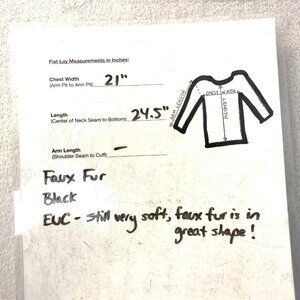 Flat Lay Measurements in Inches:
Chest Width
(Arm Pit to Arm Pit) 21"
Length
(Center of Neck Seam to Bottom) 24.5"
Arm Length
(Shoulder Seam to Cuff) -
ARM LENGTH
CHEST WIDTH
LENGTH
Faux Fur
Black
EUC - still very soft, faux fur is in
great shape!